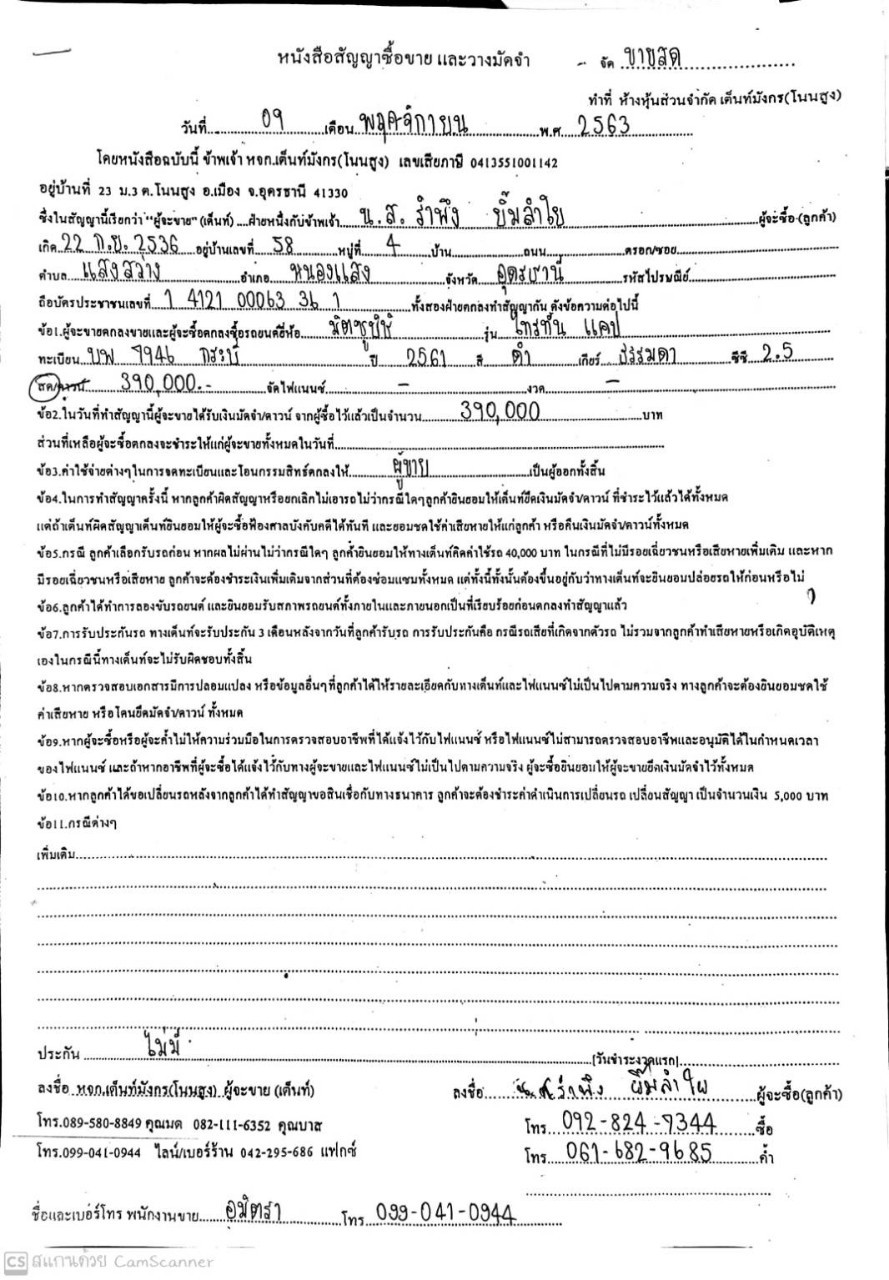 หนังสือสัญญาซื้อขาย และวางมัดจำ - จัด ขายสด
ทำที่ ห้างหุ้นส่วนจำกัด เต็นท์มังกร(โนนสูง)
วันที่ 09 เดือน พฤศจิกายน พ.ศ 2563
โดยหนังสือฉบับนี้ ข้าพเจ้า หจก.เต็นท์มังกร(โนนสูง) เลขเสียภาษี 0413551001142
อยู่บ้านที่ 23 ม.3 ต.โนนสูง อ.เมือง จ.อุดรธานี 41330
ซึ่งในสัญญานี้เรียกว่า "ผู้จะขาย" (เต็นท์) ....ฝ่ายหนึ่งกับข้าพเจ้า น.ส. รำพึง ยิ้มลำใย ผู้จะซื้อ (ลูกค้า)
เกิด 22 ก.ย. 2536 อยู่บ้านเลขที่ 58 หมู่ที่ 4 บ้าน ถนน ตรอก/ซอย
ตำบล แสงสว่าง อำเภอ หนองแสง จังหวัด อุดรธานี รหัสไปรษณีย์
ถือบัตรประชาชนเลขที่ 1 4121 00063 36 1 ทั้งสองฝ่ายตกลงทำสัญญากัน ดังข้อความต่อไปนี้
ข้อ1.ผู้จะขายตกลงขายและผู้จะซื้อตกลงซื้อรถยนต์ยี่ห้อ มิตซูบิชิ รุ่น ไทรทัน แคป
ทะเบียน บพ 7946 กระบี่ ปี 2561 สี ดำ เกียร์ ธรรมดา ซีซี 2.5
สด/ดาวน์ 390,000.- จัดไฟแนนซ์ - งวด -
ข้อ2.ในวันที่ทำสัญญานี้ผู้จะขายได้รับเงินมัดจำ/ดาวน์ จากผู้ซื้อไว้แล้วเป็นจำนวน 390,000 บาท
ส่วนที่เหลือผู้จะซื้อตกลงจะชำระให้แก่ผู้จะขายทั้งหมดในวันที่
ข้อ3.ค่าใช้จ่ายต่างๆในการจดทะเบียนและโอนกรรมสิทธิ์ตกลงให้ ผู้ขาย เป็นผู้ออกทั้งสิ้น
ข้อ4.ในการทำสัญญาครั้งนี้ หากลูกค้าผิดสัญญาหรือยกเลิกไม่เอารถไม่ว่ากรณีใดๆลูกค้ายินยอมให้เต็นท์ยึดเงินมัดจำ/ดาวน์ ที่ชำระไว้แล้วได้ทั้งหมด
แต่ถ้าเต็นท์ผิดสัญญาเต็นท์ยินยอมให้ผู้จะซื้อฟ้องศาลบังคับคดีได้ทันที และยอมชดใช้ค่าเสียหายให้แก่ลูกค้า หรือคืนเงินมัดจำ/ดาวน์ทั้งหมด
ข้อ5.กรณี ลูกค้าเลือกรับรถก่อน หากผลไม่ผ่านไม่ว่ากรณีใดๆ ลูกค้ายินยอมให้ทางเต็นท์คิดค่าใช้รถ 40,000 บาท ในกรณีที่ไม่มีรอยเฉี่ยวชนหรือเสียหายเพิ่มเติม และหาก
มีรอยเฉี่ยวชนหรือเสียหาย ลูกค้าจะต้องชำระเงินเพิ่มเติมจากส่วนที่ต้องซ่อมแซมทั้งหมด แต่ทั้งนี้ทั้งนั้นต้องขึ้นอยู่กับว่าทางเต็นท์จะยินยอมปล่อยรถให้ก่อนหรือไม่
ข้อ6.ลูกค้าได้ทำการลองขับรถยนต์ และยินยอมรับสภาพรถยนต์ทั้งภายในและภายนอกเป็นที่เรียบร้อยก่อนตกลงทำสัญญาแล้ว
ข้อ7.การรับประกันรถ ทางเต็นท์จะรับประกัน 3 เดือนหลังจากวันที่ลูกค้ารับรถ การรับประกันคือ กรณีรถเสียที่เกิดจากตัวรถ ไม่รวมจากลูกค้าทำเสียหายหรือเกิดอุบัติเหตุ
เองในกรณีนี้ทางเต็นท์จะไม่รับผิดชอบทั้งสิ้น
ข้อ8.หากตรวจสอบเอกสารมีการปลอมแปลง หรือข้อมูลอื่นๆที่ลูกค้าได้ให้รายละเอียดกับทางเต็นท์และไฟแนนซ์ไม่เป็นไปตามความจริง ทางลูกค้าจะต้องยินยอมชดใช้
ค่าเสียหาย หรือโดนยึดมัดจำ/ดาวน์ ทั้งหมด
ข้อ9.หากผู้จะซื้อหรือผู้จะค้ำไม่ให้ความร่วมมือในการตรวจสอบอาชีพที่ได้แจ้งไว้กับไฟแนนซ์ หรือไฟแนนซ์ไม่สามารถตรวจสอบอาชีพและอนุมัติได้ในกำหนดเวลา
ของไฟแนนซ์ และถ้าหากอาชีพที่ผู้จะซื้อได้แจ้งไว้กับทางผู้จะขายและไฟแนนซ์ไม่เป็นไปตามความจริง ผู้จะซื้อยินยอมให้ผู้จะขายยึดเงินมัดจำไว้ทั้งหมด
ข้อ10.หากลูกค้าได้ขอเปลี่ยนรถหลังจากลูกค้าได้ทำสัญญาขอสินเชื่อกับทางธนาคาร ลูกค้าจะต้องชำระค่าดำเนินการเปลี่ยนรถ เปลี่ยนสัญญา เป็นจำนวนเงิน 5,000 บาท
ข้อ11.กรณีต่างๆ
เพิ่มเติม
ประกัน ไม่มี [วันชำระงวดแรก]
ลงชื่อ หจก.เต็นท์มังกร(โนนสูง) ผู้จะขาย (เต็นท์) ลงชื่อ น.ส.รำพึง ยิ้มลำใย ผู้จะซื้อ(ลูกค้า)
โทร.089-580-8849 คุณมด 082-111-6352 คุณบาส โทร 092-824-9344 ซื้อ
โทร.099-041-0944 ไลน์/เบอร์ร้าน 042-295-686 แฟกซ์ โทร 061-682-9685 ค้ำ
ชื่อและเบอร์โทร พนักงานขาย อมิตรา โทร 099-041-0944
CS สแกนด้วย CamScanner